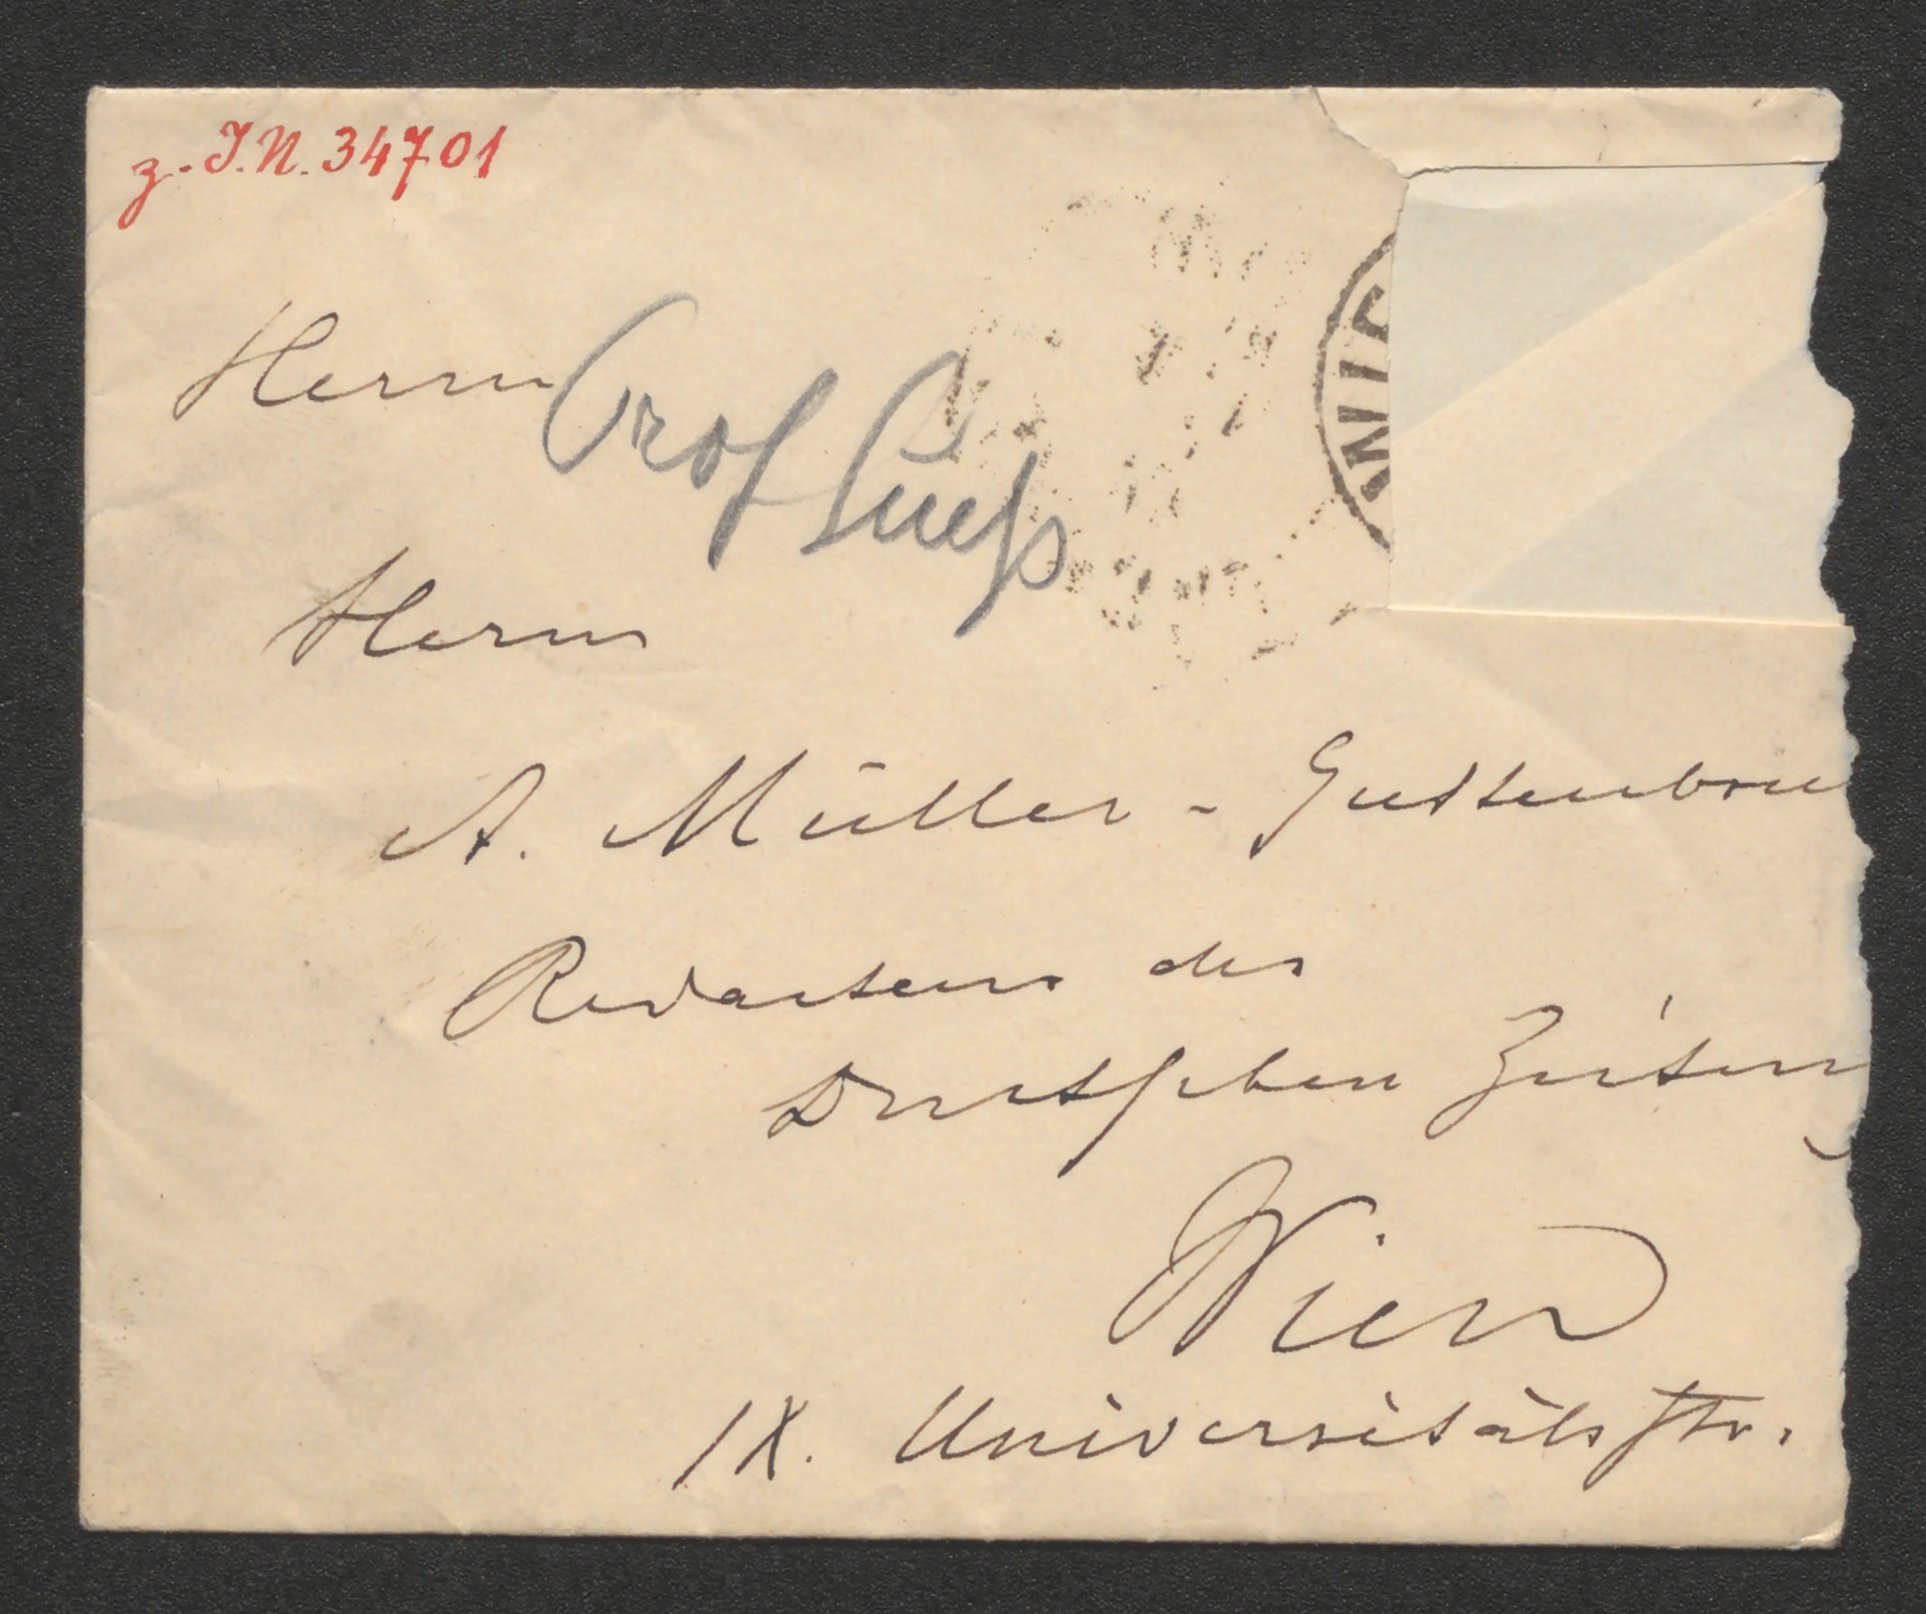 z. I.N. 34701
Herrn
Prof Sueß
Herrn
A. Müller-Guttenbrun
Redacteur der
Deutschen Zeitung
Wien
IX. Universitätsstr.